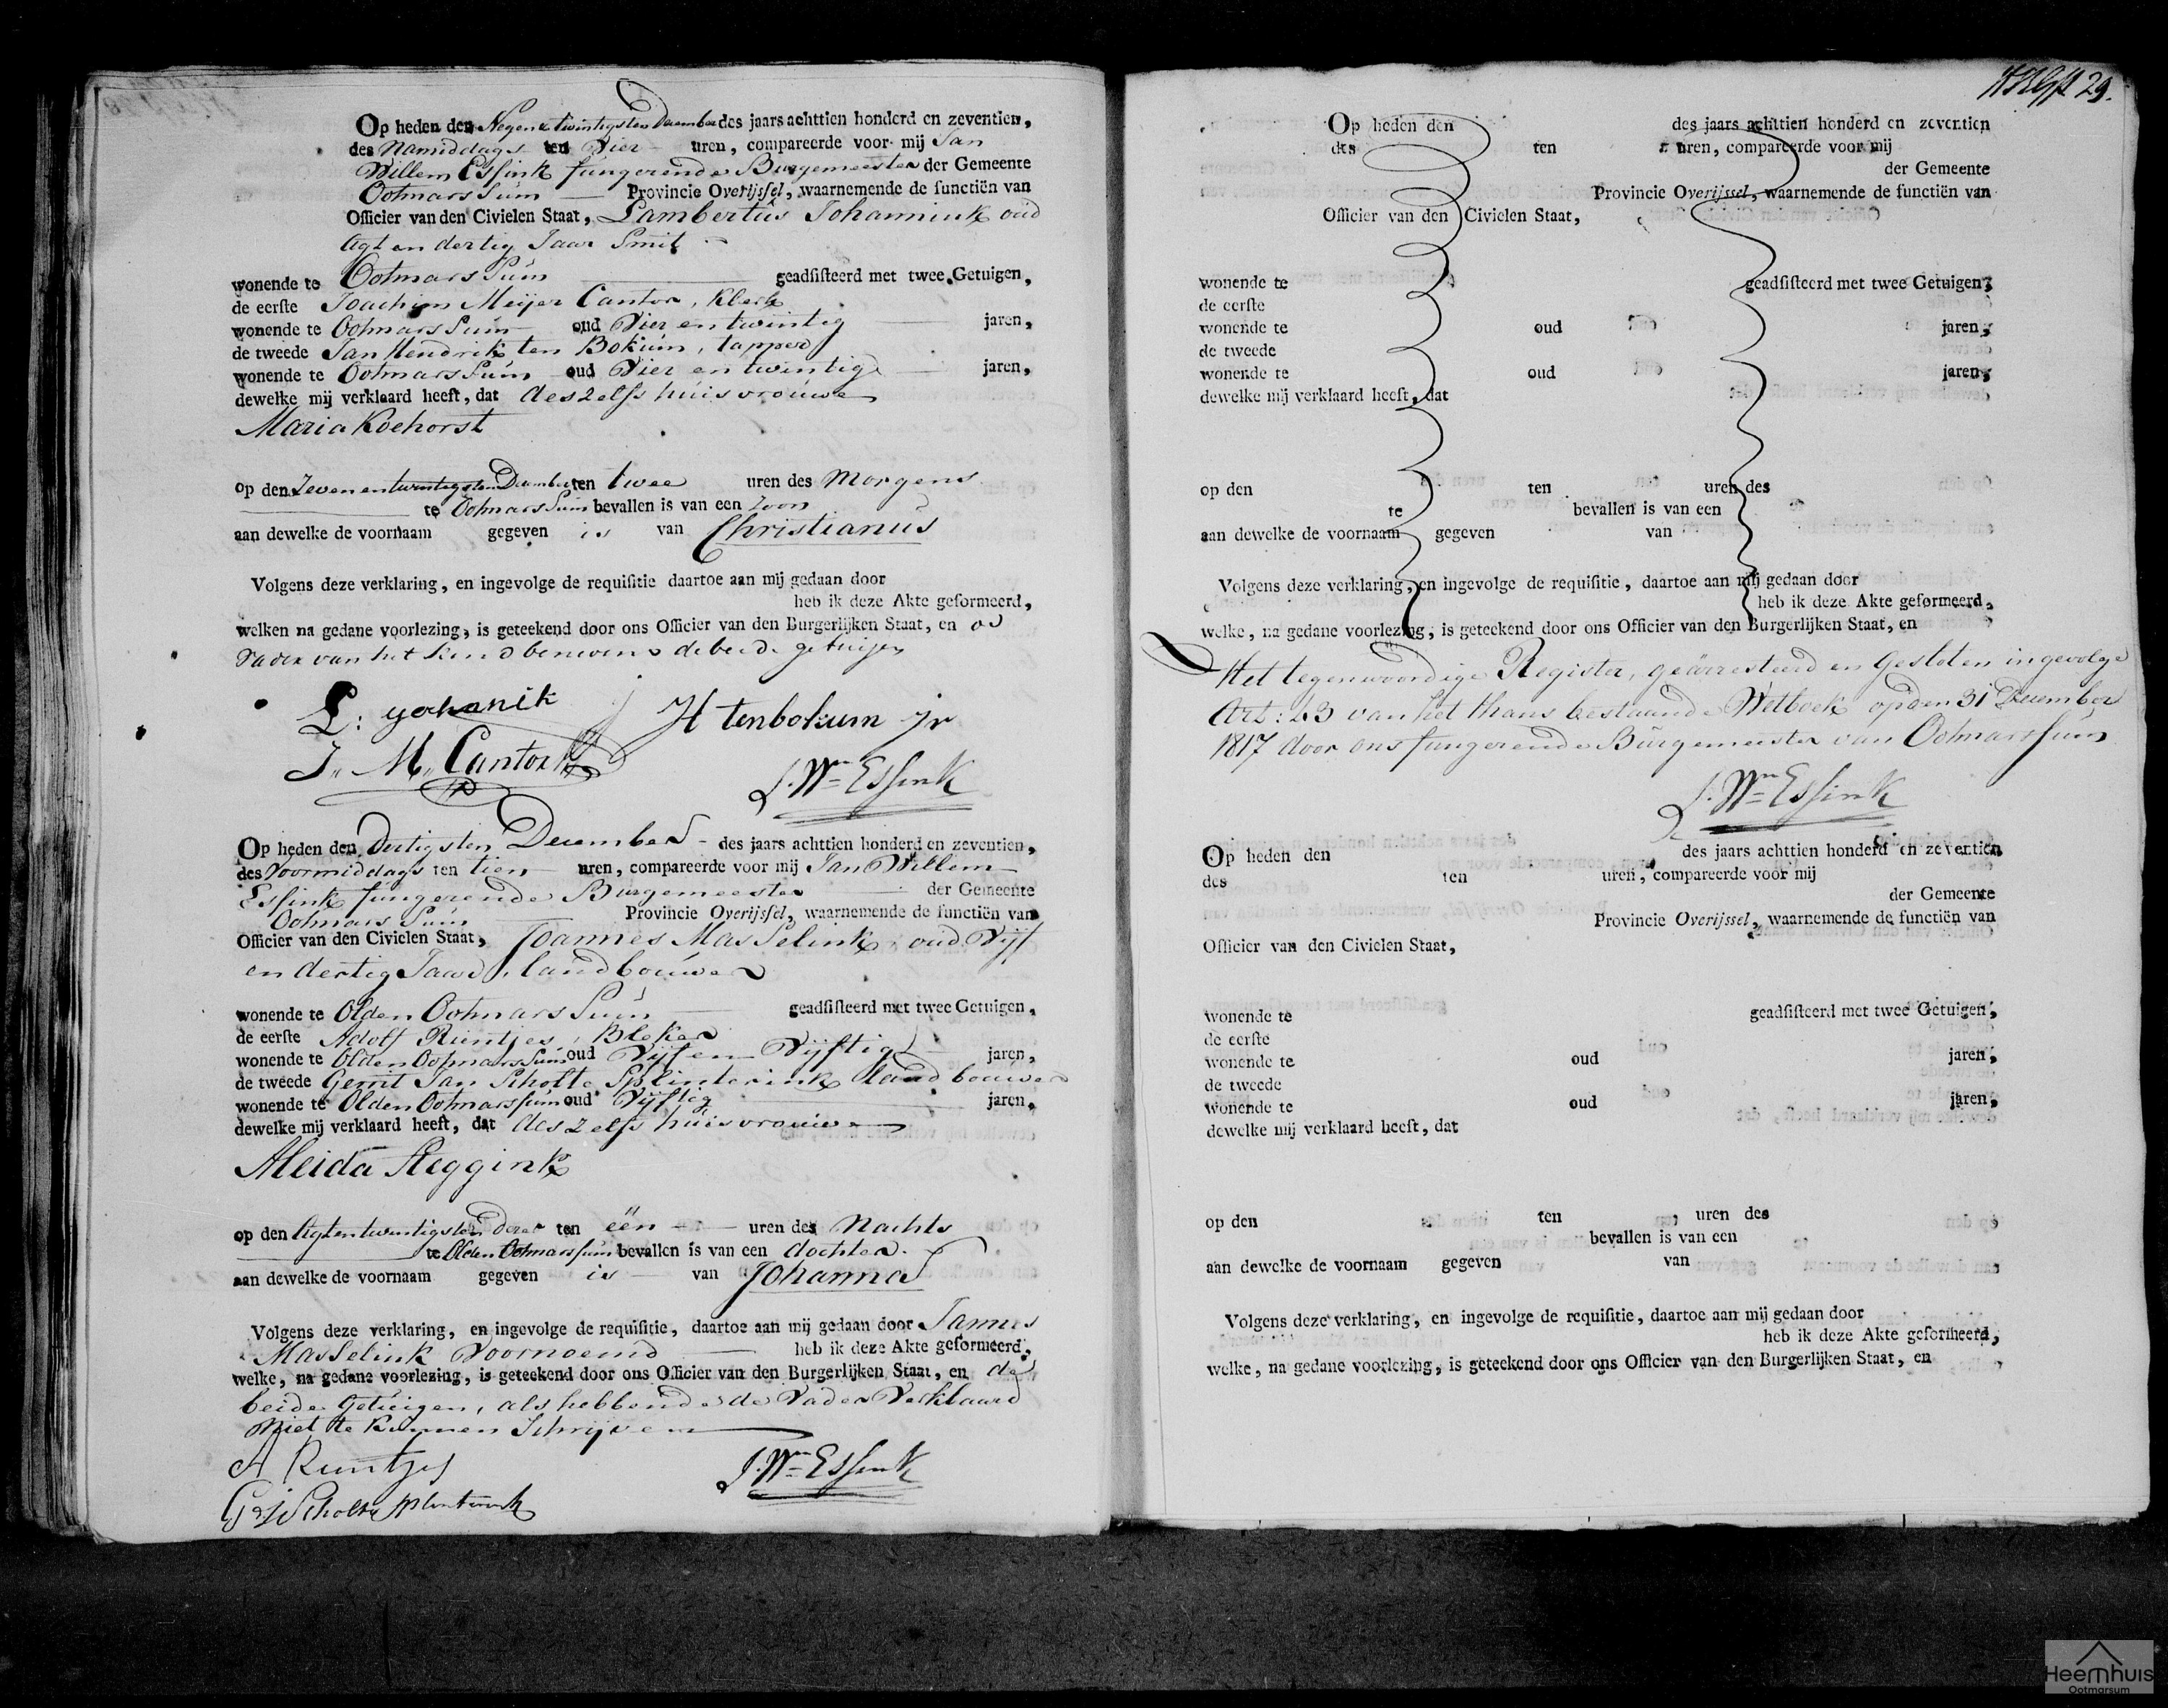 Op heden den Negen & twintigsten December des jaars achttien honderd en zeventien,
des Namiddags ten Vier uren, compareerde voor mij Jan
Willem Essink fungerende Burgemeester der Gemeente
Ootmarssum Provincie Overijssel, waarnemende de functiën van
Officier van den Civielen Staat, Lambertus Johannink oud
Agt en dertig Jaar Smit
wonende te Ootmarssum geadsisteerd met twee Getuigen,
de eerste Joachim Meijer Cantor, Klerk
wonende te Ootmarssum oud Vier en twintig jaren,
de tweede Jan Hendrik ten Bokum, tapper
wonende te Ootmarssum oud Vier en twintig jaren,
dewelke mij verklaard heeft, dat deszelfs huisvrouwe
Maria Koehorst
op den Zeven en twintigsten December ten twee uren des Morgens
te Ootmarssum bevallen is van een zoon
aan dewelke de voornaam gegeven is van Christianus
Volgens deze verklaring, en ingevolge de requisitie daartoe aan mij gedaan door
heb ik deze Akte geformeerd,
welken na gedane voorlezing, is geteekend door ons Officier van den Burgerlijken Staat, en
vader van het kind benevens de beide getuigen
L: yohanik
J H tenbokum jr
J. M. Cantor
J. Wm Essink
Op heden den Dertigsten December des jaars achttien honderd en zeventien,
des Voormiddags ten tien uren, compareerde voor mij Jan Willem
Essink fungerende Burgemeester der Gemeente
Ootmarssum Provincie Overijssel, waarnemende de functiën van
Officier van den Civielen Staat, Joannes Masselink oud Vijf
en dertig Jaar, landbouwer
wonende te Olden Ootmarssum geadsisteerd met twee Getuigen,
de eerste Adolf Rientjes, Bleker
wonende te Olden Ootmarssum oud Vijf en Vijftig jaren,
de tweede Gerrit Jan Scholte Splinterink landbouwer
wonende te Olden Ootmarssum oud Vijftig jaren,
dewelke mij verklaard heeft, dat deszelfs huisvrouwe
Aleida Reggink
op den Agtentwintigsten dezer ten één uren des Nachts
te Olden Ootmarssum bevallen is van een dochter
aan dewelke de voornaam gegeven is van Johanna
Volgens deze verklaring, en ingevolge de requisitie, daartoe aan mij gedaan door Jannes
Masselink Voornoemd heb ik deze Akte geformeerd,
welke, na gedane voorlezing, is geteekend door ons Officier van den Burgerlijken Staat, en de
beide Getuigen, als hebbende de Vader Verklaard
Niet te kunnen Schrijven
A Rientjes
J. Wm Essink
29.
Op heden den des jaars achttien honderd en zeventien
des ten uren, compareerde voor mij
der Gemeente
Provincie Overijssel, waarnemende de functiën van
Officier van den Civielen Staat,
wonende te geadsisteerd met twee Getuigen,
de eerste
wonende te oud jaren,
de tweede
wonende te oud jaren,
dewelke mij verklaard heeft, dat
op den ten uren des
te bevallen is van een
aan dewelke de voornaam gegeven van
Volgens deze verklaring, en ingevolge de requisitie, daartoe aan mij gedaan door
heb ik deze Akte geformeerd,
welke, na gedane voorlezing, is geteekend door ons Officier van den Burgerlijken Staat, en
Het tegenwoordige Register, geärresteerd en gesloten ingevolge
Art: 43 van het thans bestaande Wetboek op den 31 December
1817 door ons fungerende Burgemeester van Ootmarssum
J. Wm Essink
Op heden den des jaars achttien honderd en zeventien
des ten uren, compareerde voor mij
der Gemeente
Provincie Overijssel, waarnemende de functiën van
Officier van den Civielen Staat,
wonende te geadsisteerd met twee Getuigen,
de eerste
wonende te oud jaren,
de tweede
wonende te oud jaren,
dewelke mij verklaard heeft, dat
op den ten uren des
bevallen is van een
aan dewelke de voornaam gegeven van
Volgens deze verklaring, en ingevolge de requisitie, daartoe aan mij gedaan door
heb ik deze Akte geformeerd,
welke, na gedane voorlezing, is geteekend door ons Officier van den Burgerlijken Staat, en
Heemhuis
Ootmarsum